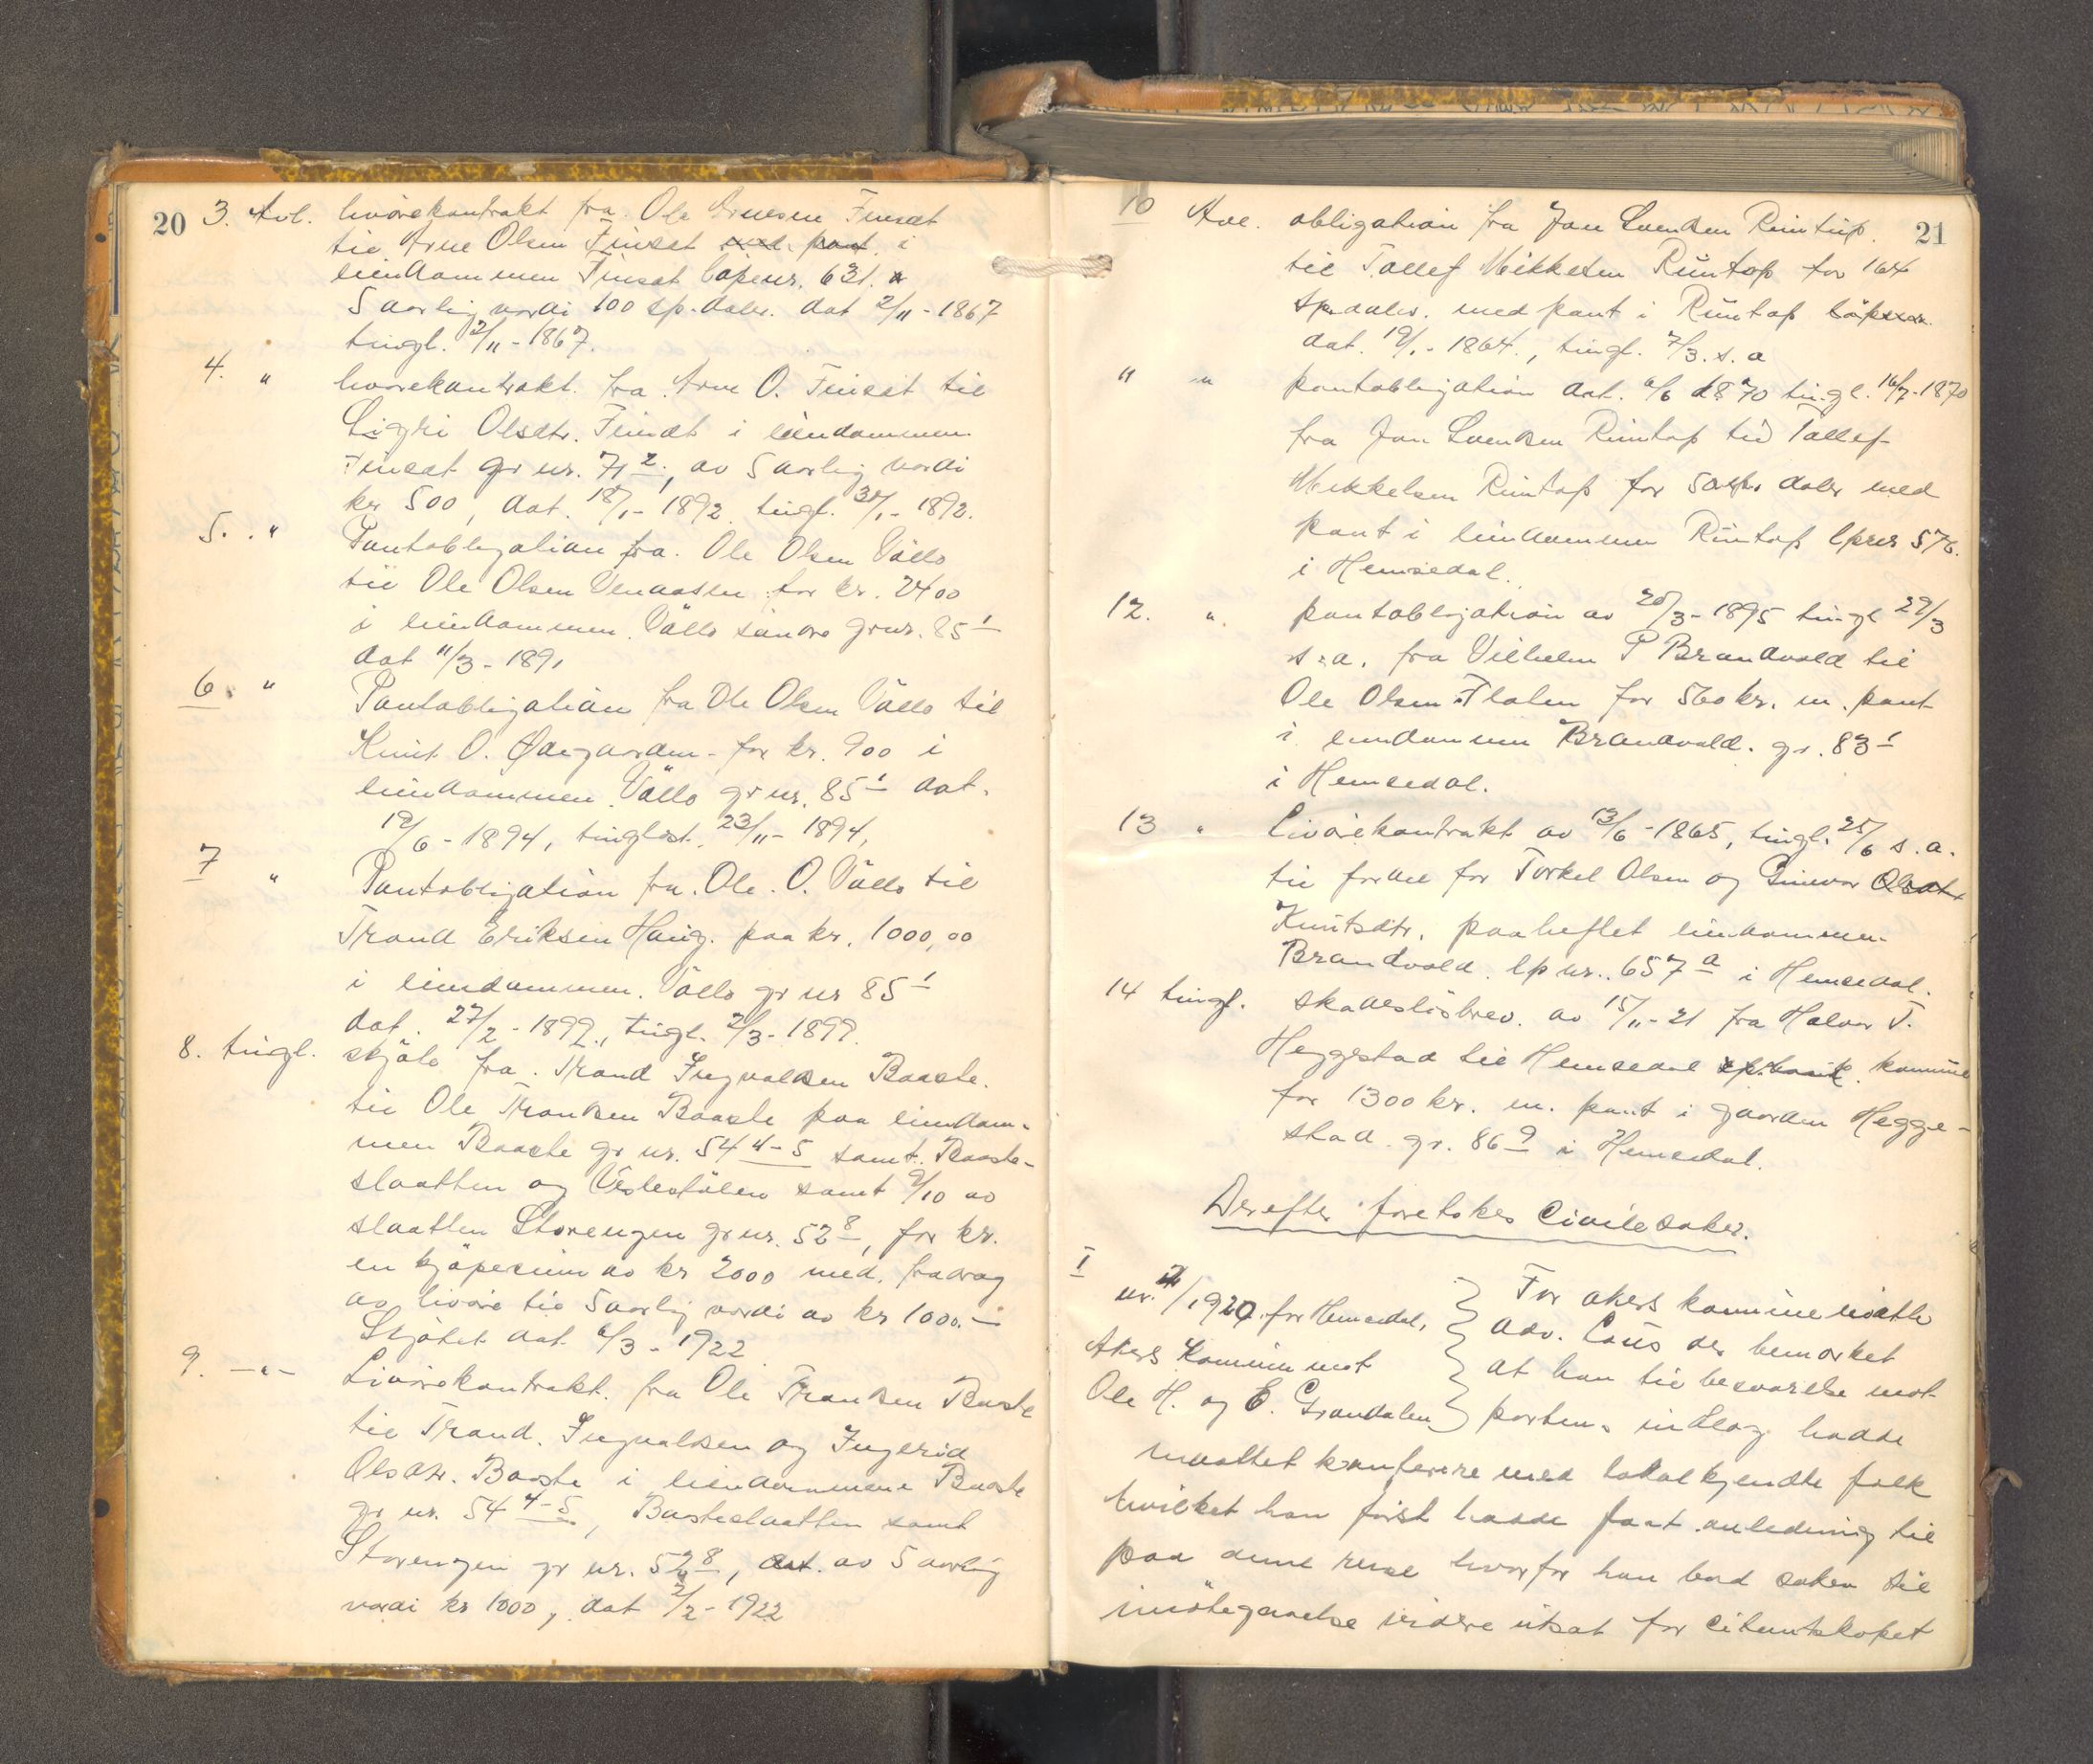 20
3. Avl. livörekontrakt fra Ole Arnesen Finset
til Arne Olsen Finset med pant i
eiendommen Finset löpenr. 631. a
5 aarlig værdi 100 sp.daler. dat 2/11 - 1867
tingl. 2/11 - 1867.
4. " livörekontrakt. fra Arne O. Finset til
Sigri Olsdtr. Finset i eiendommen
Finset gr nr. 71 2., av 5 aarlig værdi
kr 500, dat. 18/1 - 1892 tingl. 30/1 - 1892.
5. " Pantobligation fra Ole Olsen Völlo
til Ole Olsen Venaasen for kr. 2400
i eiendommen Völlo söndre grnr. 85 1
dat 11/3 - 1891
6. " Pantobligation fra Ole Olsen Völlo til
Knut O. Ødegaarden - for kr. 900 i
eiendommen Völlo gr nr. 85 1 dat.
19/6 - 1894, tinglæst. 23/11 - 1894,
7 " Pantobligation fra Ole O. Völlo til
Trond Eriksen Haug. paa kr. 1000,00
i eiendommen. Völlo gr nr 85 1
dat. 27/2 - 1899., tingl. 2/3 - 1899.
8. tingl. skjöte fra Trond Ingvaldsen Baaste.
til Ole Trondsen Baaste paa eiendom-
men Baaste gr nr. 54 4-5 samt Baaste-
slaatten og Veslestölen samt 9/10 av
slaatten Storengen grnr. 52 8, for kr.
en kjöpesum av kr 2000 med fradrag
av livöre til 5 aarlig værdi av kr 1000.-
Skjötet dat. 6/3 - 1922
9. -"- Livörekontrakt. fra Ole Trondsen Baaste
til Trond. Ingvaldsen og Ingerid
Olsdtr. Baaste i eiendommene Baaste
gr nr. 54 4-5, Baasteslaatten samt
Storengen gr nr. 52 8, dat. av 5 aarlig
værdi kr 1000, dat 2/2 - 1922
21
10 Avl. obligation fra Jon Svendsen Rüntop.
til Tollef Mikkelsen Rüntop for 164
spdaler. med pant i Rüntop
dat. 19/1 - 1864., tingl. 7/3. s. a
" " pantobligation dat. 6/6 1870 tingl. 16/7 - 1870
fra Jon Svendsen Rüntop til Tollef
Mikkelsen Rüntop for 50 sp. daler med
pant i eiendommen Rüntop lpnr 576.
i Hemsedal.
12. " pantobligation av 20/3 - 1895 tingl 29/3
s. a. fra Vilhelm P Brandvold til
Ole Olsen Flaten for 560 kr. m. pant
i eiendommen Brandvold. gr. 83 1
i Hemsedal.
13 " Livörekontrakt av 13/6 - 1865, tingl. 25/6 s. a.
til fordel for Torkel Olsen og Gunvor Olsdtr
Knutsdtr. paaheftet eiendommen
Brandvold. lp nr. 657 a i Hemsedal.
14 tingl. skadeslösbrev. av 15/11 - 21 fra Halvor T.
Heggestad til Hemsedal sp.bank. kommune
for 1300 kr. m. pant i gaarden Hegge-
stad gr. 86 9 i Hemsedal.
Derefter foretokes Civile saker.
I
nr. /1920. for Hemsedal.
Akers Kommune mot
Ole H. og E. Grøndalen
For akers kommune mötte
adv. der bemerket
at han til besvarelse mot-
partens indlæg hadde
maattet konferere med lokalkjendte folk
hvilket han först hadde faat anledning til
paa denne reise hvorfor han bad saken til
imötegaaelse videre utsat for citantskapet